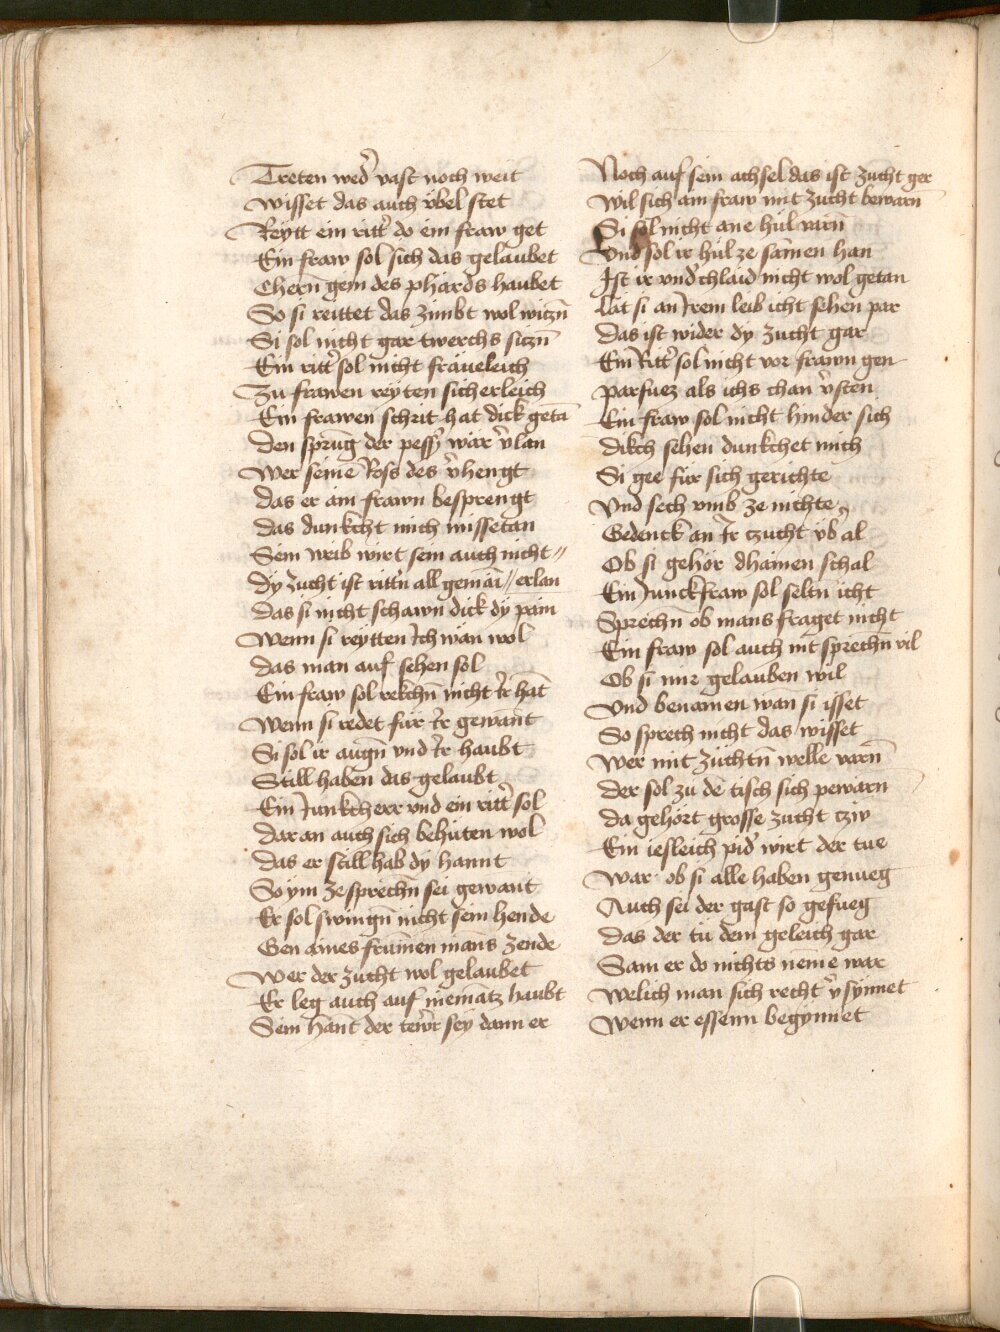 Treten wed͛ vast noch weit
Wisset das auch vbel stet
Reytt ein ritt͛ do ein fraw get
Ein fraw sol sich das gelaubet
Chern̄ gein des phards haubet
So si reittet das zimbt wol wizn̄
Si sol nicht gar twerchs sizn̄
Ein ritt͛ sol nicht fräueleich
Zu frawen reyten sicherleich
Ein frawen schrit hat dick getā
Den sprūg der pess͛ war v͛lan
Wer seinē Ross des v͛hengt
Das er ain frawn besprengt
Das dunkcht mich missetan
Sein weib wirt sein auch nicht //
Dy zucht ist ritt͛n all gemāi // erlan
Das si nicht schawn dick dy pain
Wenn si reytten Ich wān wol
Das man auf sehen sol
Ein fraw sol rekchn̄ nicht Ir hāt
Wenn si redet für Ir gewānt
Si sol ir augn̄ vnd Ir haubt
Still haben das gelaubt
Ein Junkcherr vnd ein ritt͛ sol
Dar an auch sich behüten wol
Das er still hab dy hannt
So ym ze sprechn̄ sei gewant
Er sol swingn̄ nicht sein hende
Gen aines frūmen mans zende
Wer der zucht wol gelaubet
Er leg auch auf niemātz haubt
Sein hānt der tew͛r sey dann er
Noch auf sein achsel das ist zucht ger
Wil sich ain fraw mit zucht bewarn
Si sol nicht ane hül varn̄
Vnd sol ir hül ze samen han
Ist ir vnd͛chlaid nicht wol getan
Lat si an Irem leib icht sehen par
Das ist wider dy zucht gar
Ein Ritt͛ sol nicht vor frawn gen
Parfuez als ichs chan v͛sten
Ein fraw sol nicht hinder sich
Dikch sehen dunkchet mich
Si gee für sich gerichte
Vnd sech vmb ze nichte
Gedenck an Ir tzucht vb͛ al
Ob si gehör dhainen schal
Ein Junckfraw sol seltn̄ icht
Sprechn̄ ob mans fraget nicht
Ein fraw sol auch nit sprechn̄ vil
Ob si mir gelauben wil
Vnd benamen wan si isset
So sprech nicht das wisset
Wer mit züchtn̄ welle varn̄
Der sol zu dē tisch sich pewarn
Da gehört grosse zucht tzw
Ein iesleich pid͛ wirt der tue
War ob si alle haben genueg
Auch sei der gast so gefueg
Das der tü dem geleich gar
Sam er do nichts neme war
Welich man sich recht v͛synnet
Wenn er essenn begynnet